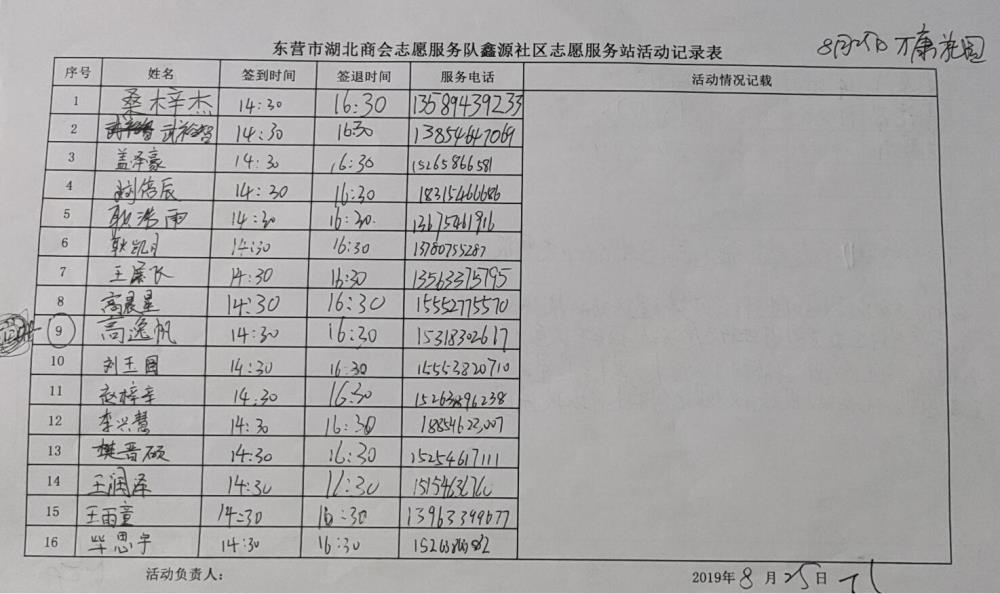 8月25日 万康花园
东营市湖北商会志愿服务队鑫源社区志愿服务站活动记录表
序号 姓名 签到时间 签退时间 服务电话 活动情况记载
1 桑梓杰 14:30 16:30 13589439233
2 武裕智 14:30 16:30 13854647069
3 盖泽豪 14:30 16:30 15265866581
4 刘倍辰 14:30 16:30 18315466686
5 耿浩雨 14:30 16:30 13675461916
6 耿凯月 14:30 16:30 13780755287
7 王 14:30 16:30 13563375795
8 高晨星 14:30 16:30 15552775570
9 高逸帆 14:30 16:30 15318302617
10 刘玉国 14:30 16:30 15553820710
11 赵梓辛 14:30 16:30 15263896238
12 李兴慧 14:30 16:30 18854622007
13 樊晋硕 14:30 16:30 15254617111
14 王润泽 14:30 16:30
15 王雨童 14:30 16:30 13963399677
16 毕思宇 14:30 16:30
活动负责人：
2019年8月25日